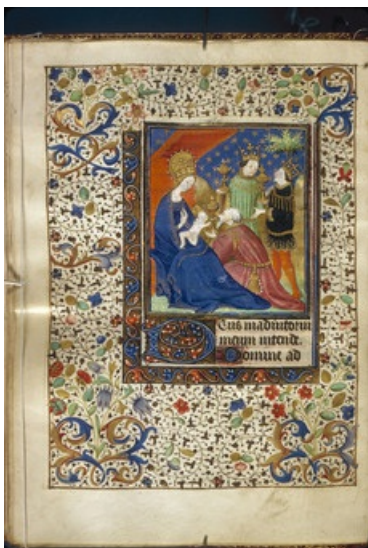 Eus in adiutoriu
meum intende.
Domine ad